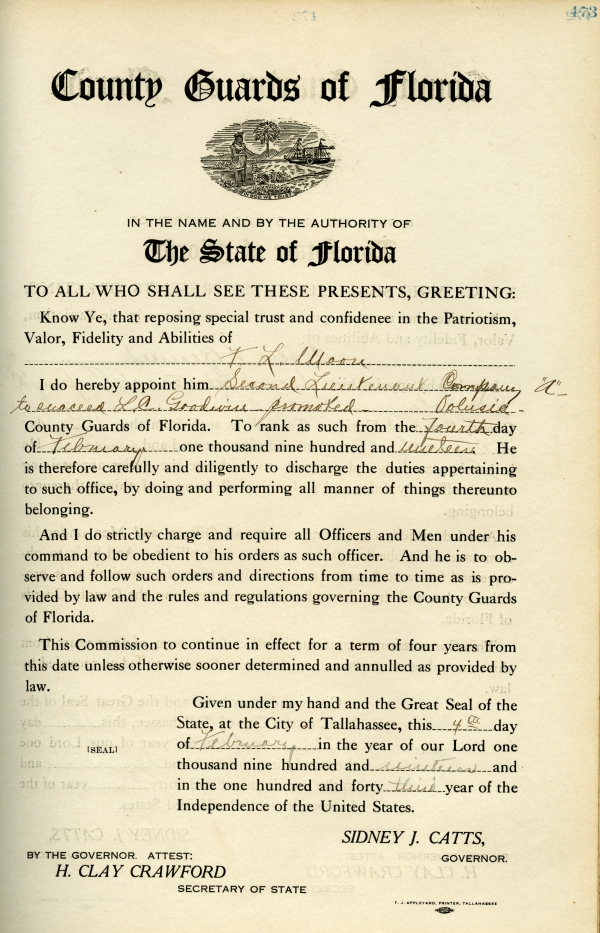 473
County Guards of Florida
IN GOD WE TRUST
IN THE NAME AND BY THE AUTHORITY OF
The State of Florida
TO ALL WHO SHALL SEE THESE PRESENTS, GREETING:
Know Ye, that reposing special trust and confidenee in the Patriotism,
Valor, Fidelity and Abilities of
T. L. Moon
I do hereby appoint him Second Lieutenant Company "A"
to succeed L.A. Goodwin promoted Volusia
County Guards of Florida. To rank as such from the fourth day
of February one thousand nine hundred and nineteen He
is therefore carefully and diligently to discharge the duties appertaining
to such office, by doing and performing all manner of things thereunto
belonging.
And I do strictly charge and require all Officers and Men under his
command to be obedient to his orders as such officer. And he is to ob-
serve and follow such orders and directions from time to time as is pro-
vided by law and the rules and regulations governing the County Guards
of Florida.
This Commission to continue in effect for a term of four years from
this date unless otherwise sooner determined and annulled as provided by
law.
Given under my hand and the Great Seal of the
State, at the City of Tallahassee, this 4th day
[SEAL] of February in the year of our Lord one
thousand nine hundred and nineteen and
in the one hundred and forty third year of the
Independence of the United States.
SIDNEY J. CATTS,
BY THE GOVERNOR. ATTEST: GOVERNOR.
H. CLAY CRAWFORD
SECRETARY OF STATE
T. J. APPLEYARD, PRINTER, TALLAHASSEE